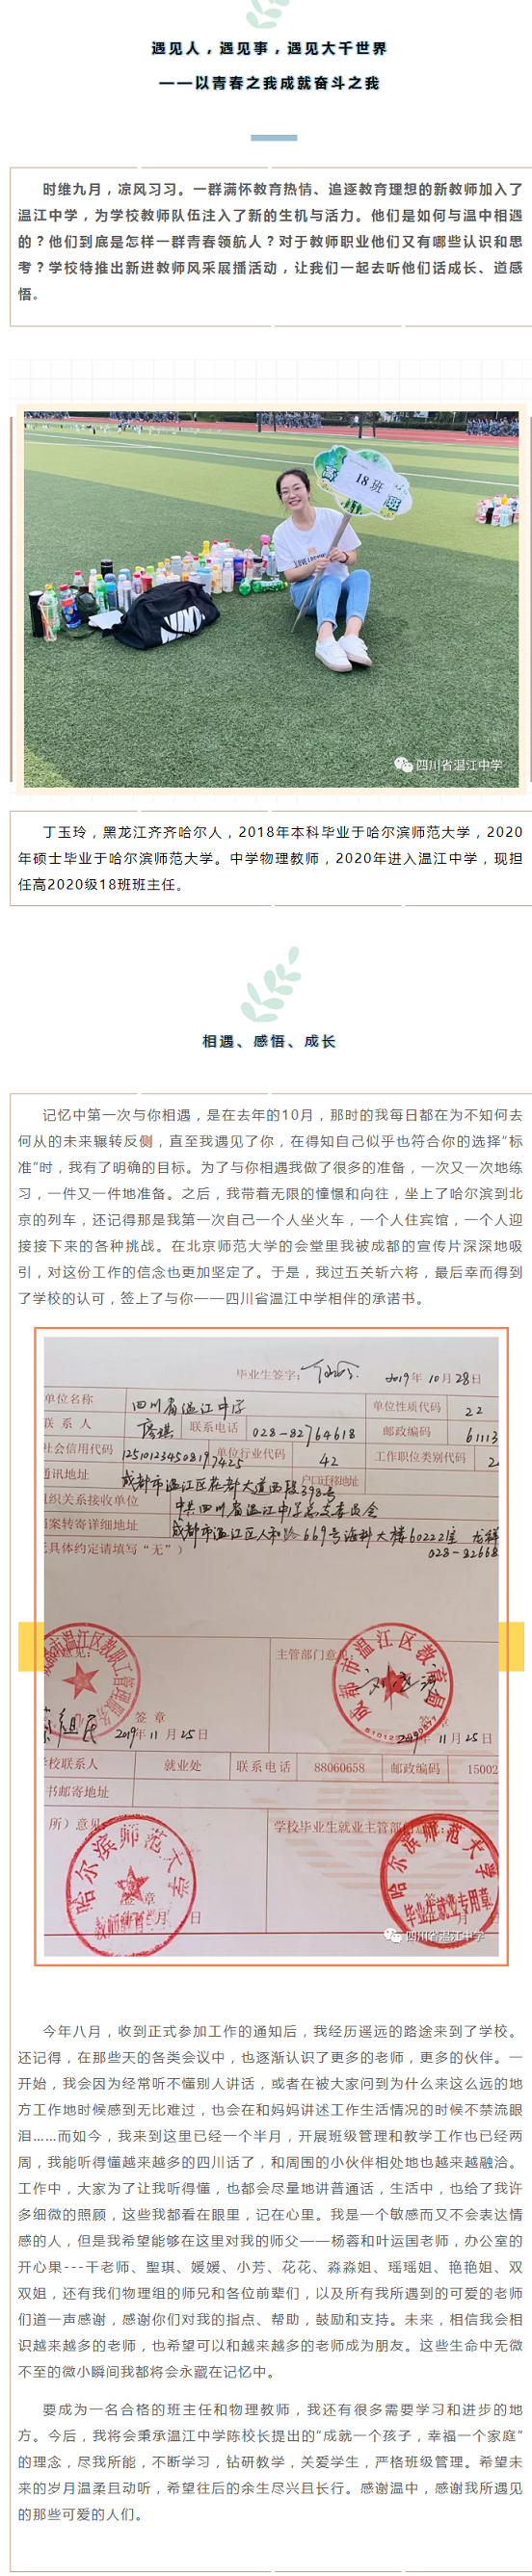 遇见人，遇见事，遇见大千世界
——以青春之我成就奋斗之我
时维九月，凉风习习。一群满怀教育热情、追逐教育理想的新教师加入了
温江中学，为学校教师队伍注入了新的生机与活力。他们是如何与温中相遇
的？他们到底是怎样一群青春领航人？对于教师职业他们又有哪些认识和思
考？学校特推出新进教师风采展播活动，让我们一起去听他们话成长、道感
悟。
18班
四川省温江中学
丁玉玲，黑龙江齐齐哈尔人，2018年本科毕业于哈尔滨师范大学，2020
年硕士毕业于哈尔滨师范大学。中学物理教师，2020年进入温江中学，现担
任高2020级18班班主任。
相遇、感悟、成长
记忆中第一次与你相遇，是在去年的10月，那时的我每日都在为不知何去
何从的未来辗转反侧，直至我遇见了你，在得知自己似乎也符合你的选择“标
准”时，我有了明确的目标。为了与你相遇我做了很多的准备，一次又一次地练
习，一件又一件地准备。之后，我带着无限的憧憬和向往，坐上了哈尔滨到北
京的列车，还记得那是我第一次自己一个人坐火车，一个人住宾馆，一个人迎
接接下来的各种挑战。在北京师范大学的会堂里我被成都的宣传片深深地吸
引，对这份工作的信念也更加坚定了。于是，我过五关斩六将，最后幸而得到
了学校的认可，签上了与你——四川省温江中学相伴的承诺书。
毕业生签字： 2019年10月28日
单位名称 四川省温江中学 单位性质代码 22
联系人 联系电话 028-82764618 邮政编码 61113
社会信用代码 单位行业代码 42 工作职位类别代码
通讯地址 成都市温江区 大道西段398号 户口迁移地址
组织关系接收单位 中共四川省温江中学总支委员会
档案转寄详细地址 成都市温江区人和路669号海科大楼60222室
028-82668
无具体约定请填写“无”）
意见： 主管部门意见：
成都市温江区教育局
签章
2019年11月25日 2019年11月25日
学校联系人 就业处 联系电话 88060658 邮政编码 15002
书邮寄地址
所）意见： 学校毕业生就业主管部门
哈尔滨师范大学 哈尔滨师范大学
签章
毕业生就业专用章
月 日
四川省温江中学
今年八月，收到正式参加工作的通知后，我经历遥远的路途来到了学校。
还记得，在那些天的各类会议中，也逐渐认识了更多的老师，更多的伙伴。一
开始，我会因为经常听不懂别人讲话，或者在被大家问到为什么来这么远的地
方工作地时候感到无比难过，也会在和妈妈讲述工作生活情况的时候不禁流眼
泪……而如今，我来到这里已经一个半月，开展班级管理和教学工作也已经两
周，我能听得懂越来越多的四川话了，和周围的小伙伴相处地也越来越融洽。
工作中，大家为了让我听得懂，也都会尽量地讲普通话，生活中，也给了我许
多细微的照顾，这些我都看在眼里，记在心里。我是一个敏感而又不会表达情
感的人，但是我希望能够在这里对我的师父——杨蓉和叶运国老师，办公室的
开心果---干老师、聖琪、媛媛、小芳、花花、淼淼姐、瑶瑶姐、艳艳姐、双
双姐，还有我们物理组的师兄和各位前辈们，以及所有我所遇到的可爱的老师
们道一声感谢，感谢你们对我的指点、帮助，鼓励和支持。未来，相信我会相
识越来越多的老师，也希望可以和越来越多的老师成为朋友。这些生命中无微
不至的微小瞬间我都将会永藏在记忆中。
要成为一名合格的班主任和物理教师，我还有很多需要学习和进步的地
方。今后，我将会秉承温江中学陈校长提出的“成就一个孩子，幸福一个家庭”
的理念，尽我所能，不断学习，钻研教学，关爱学生，严格班级管理。希望未
来的岁月温柔且动听，希望往后的余生尽兴且长行。感谢温中，感谢我所遇见
的那些可爱的人们。